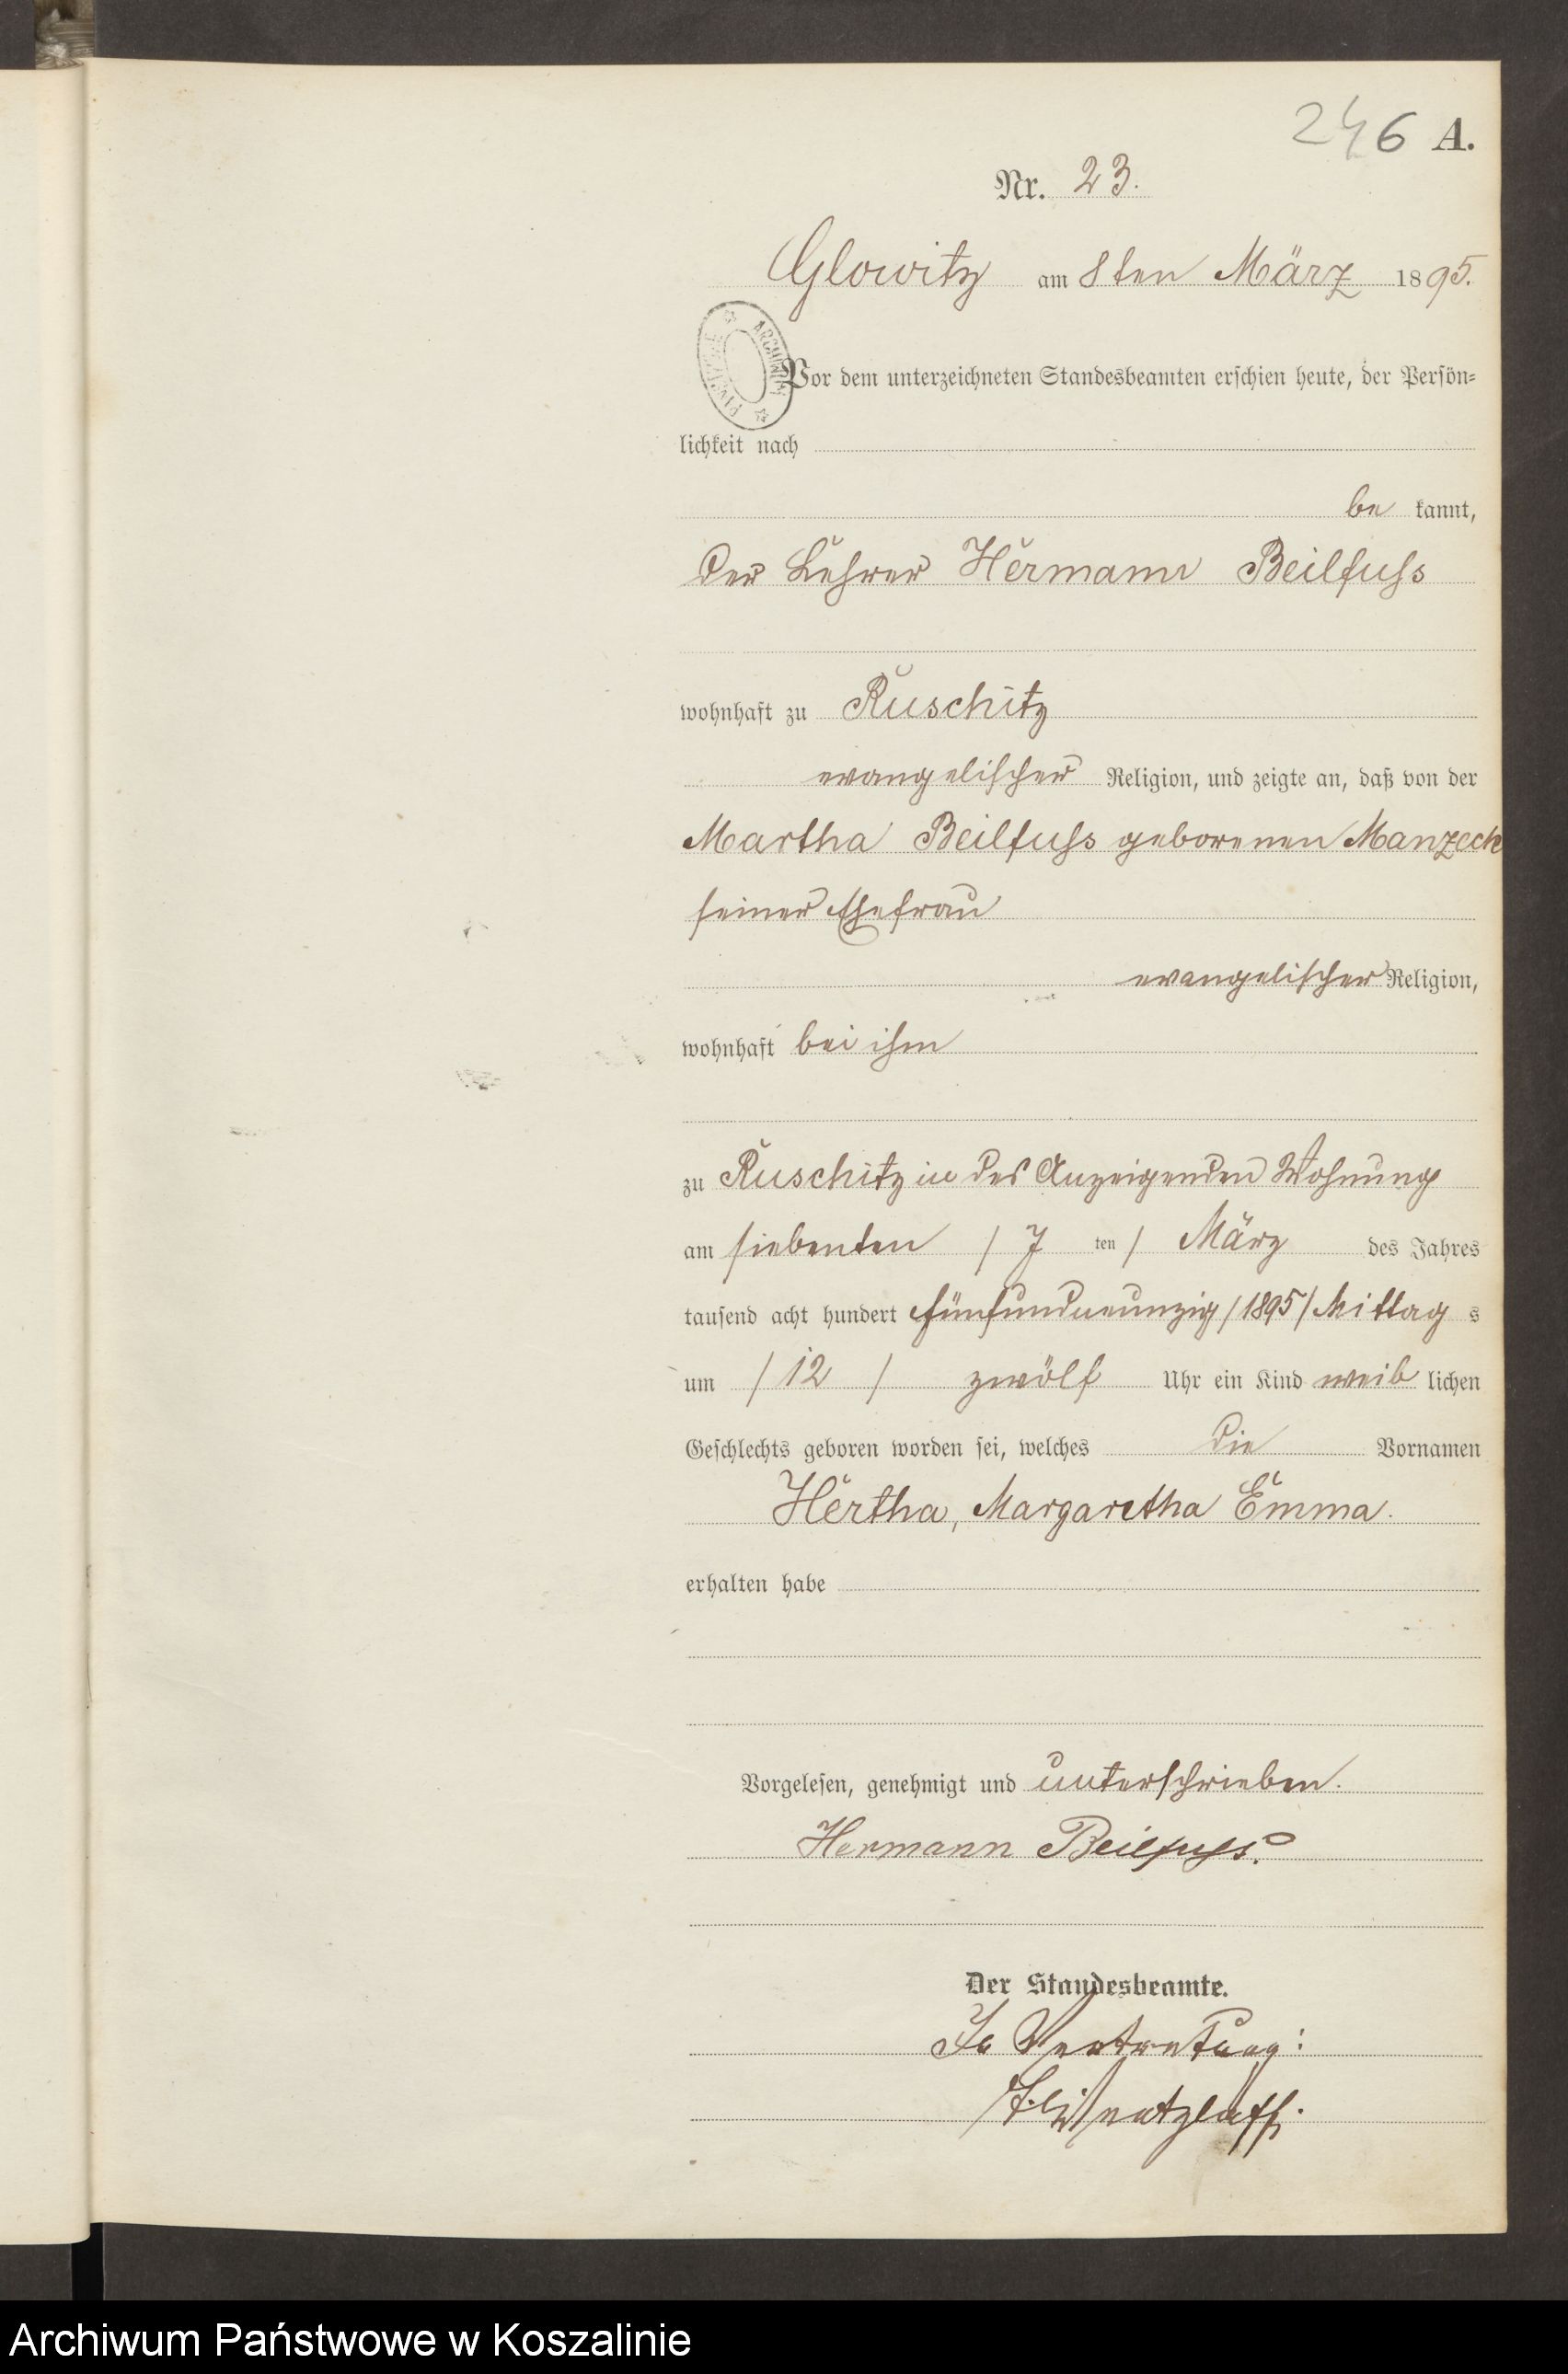 246 A.
Nr. 23.
Glowitz am 8ten März 1895.
ARCHIWUM
Vor dem unterzeichneten Standesbeamten erschien heute, der Persön-
lichkeit nach
be kannt,
der Lehrer Hermann Beilfuss
wohnhaft zu Ruschitz
evangelischer Religion, und zeigte an, daß von der
Martha Beilfuss geborenen Manzeck
seiner Ehefrau
evangelischer Religion,
wohnhaft bei ihm
zu Ruschitz in des Anzeigenden Wohnung
am siebenten / 7 ten / März des Jahres
tausend acht hundert fünfundneunzig / 1895 / Mittag s
um / 12 / zwölf Uhr ein Kind weib lichen
Geschlechts geboren worden sei, welches die Vornamen
Hertha, Margaretha Emma.
erhalten habe
Vorgelesen, genehmigt und unterschrieben.
Hermann Beilfuss.
Der Standesbeamte.
In Vertretung:
Archiwum Państwowe w Koszalinie